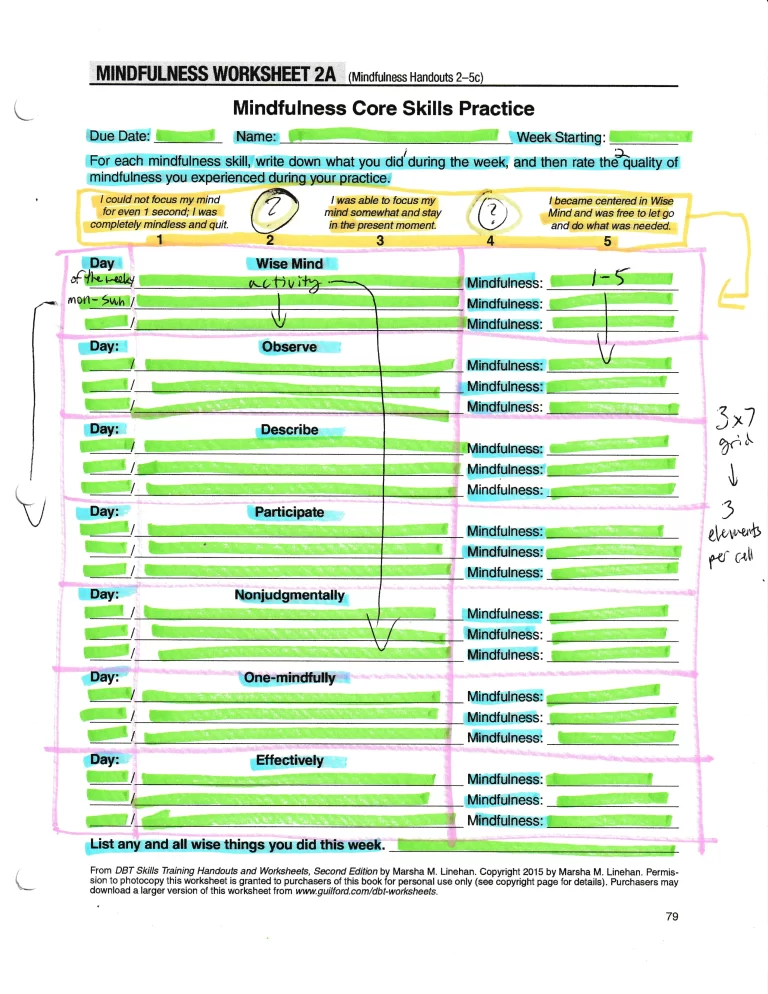 MINDFULNESS WORKSHEET 2A (Mindfulness Handouts 2–5c)
Mindfulness Core Skills Practice
Due Date: Name: Week Starting:
1 2
For each mindfulness skill, write down what you did during the week, and then rate the quality of
mindfulness you experienced during your practice.
I could not focus my mind
for even 1 second; I was
completely mindless and quit.
?
I was able to focus my
mind somewhat and stay
in the present moment.
?
I became centered in Wise
Mind and was free to let go
and do what was needed.
1 2 3 4 5
Day Wise Mind
of the week / activity Mindfulness: 1-5
mon-sun / Mindfulness:
/ Mindfulness:
Day: Observe
/ Mindfulness:
/ Mindfulness:
/ Mindfulness:
Day: Describe
/ Mindfulness:
/ Mindfulness:
/ Mindfulness:
3x7
grid
3
elements
per cell
Day: Participate
/ Mindfulness:
/ Mindfulness:
/ Mindfulness:
Day: Nonjudgmentally
/ Mindfulness:
/ Mindfulness:
/ Mindfulness:
Day: One-mindfully
/ Mindfulness:
/ Mindfulness:
/ Mindfulness:
Day: Effectively
/ Mindfulness:
/ Mindfulness:
/ Mindfulness:
List any and all wise things you did this week.
From DBT Skills Training Handouts and Worksheets, Second Edition by Marsha M. Linehan. Copyright 2015 by Marsha M. Linehan. Permis-
sion to photocopy this worksheet is granted to purchasers of this book for personal use only (see copyright page for details). Purchasers may
download a larger version of this worksheet from www.guilford.com/dbt-worksheets.
79